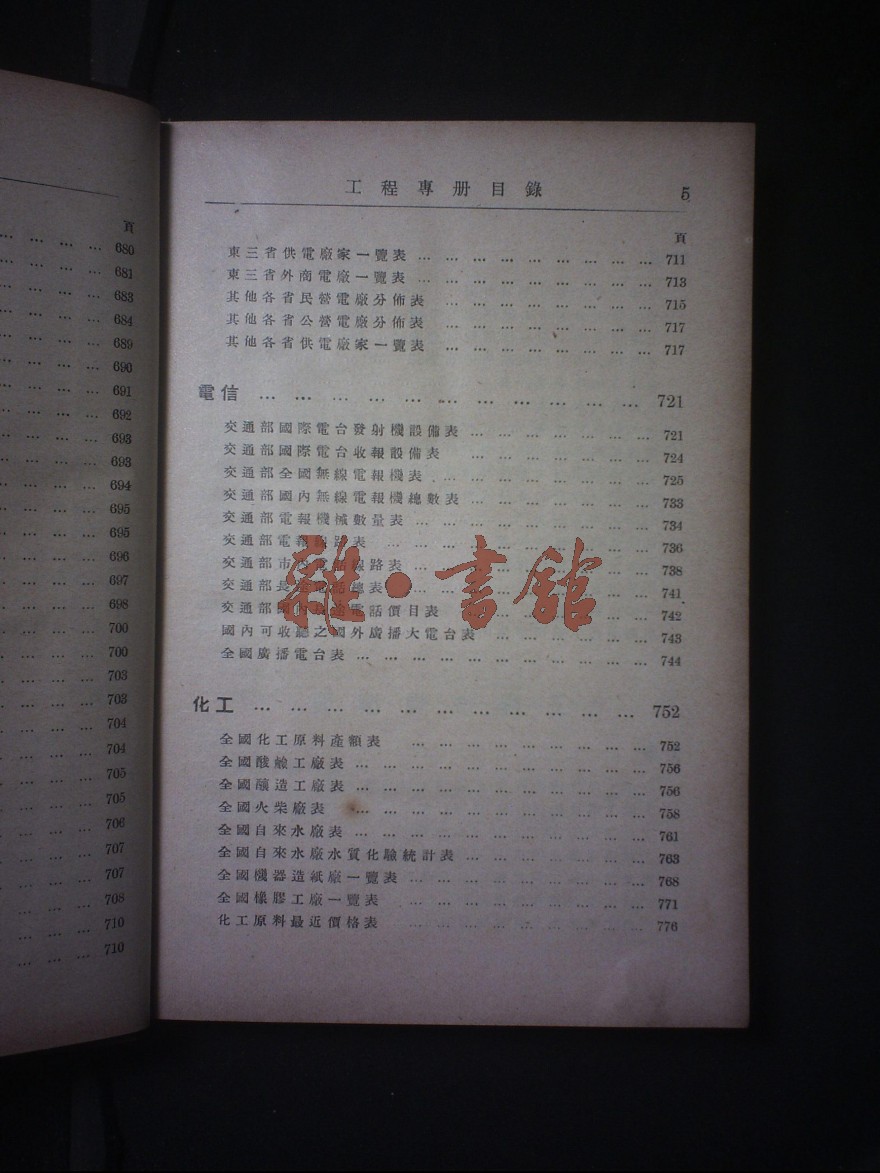 頁
680
681
683
684
689
690
691
692
693
693
694
695
695
696
697
698
700
700
703
703
704
704
705
705
706
707
707
708
710
710
工程專册目錄 5
頁
東三省供電廠家一覽表 … … … … … … … … … 711
東三省外商電廠一覽表 … … … … … … … … … 713
其他各省民營電廠分佈表 … … … … … … … … 715
其他各省公營電廠分佈表 … … … … … … … … 717
其他各省供電廠家一覽表 … … … … … … … … 717
電信 … … … … … … … … … … … 721
交通部國際電台發射機設備表 … … … … … … … 721
交通部國際電台收報設備表 … … … … … … … 724
交通部全國無線電報機表 … … … … … … … … 725
交通部國內無線電報機總數表 … … … … … … … 733
交通部電報機械數量表 … … … … … … … … … 734
交通部電報線路表 … … … … … … … … … … 736
交通部市內電話線路表 … … … … … … … … … 738
交通部長途電話總表 … … … … … … … … … 741
交通部國內長途電話價目表 … … … … … … … … 742
國內可收聽之國外廣播大電台表 … … … … … … 743
全國廣播電台表 … … … … … … … … … … … 744
雜·書館
化工 … … … … … … … … … … … 752
全國化工原料產額表 … … … … … … … … … 752
全國酸鹼工廠表 … … … … … … … … … … … 756
全國釀造工廠表 … … … … … … … … … … … 756
全國火柴廠表 … … … … … … … … … … … 758
全國自來水廠表 … … … … … … … … … … … 761
全國自來水廠水質化驗統計表 … … … … … … … 763
全國機器造紙廠一覽表 … … … … … … … … … 768
全國橡膠工廠一覽表 … … … … … … … … … 771
化工原料最近價格表 … … … … … … … … … 776